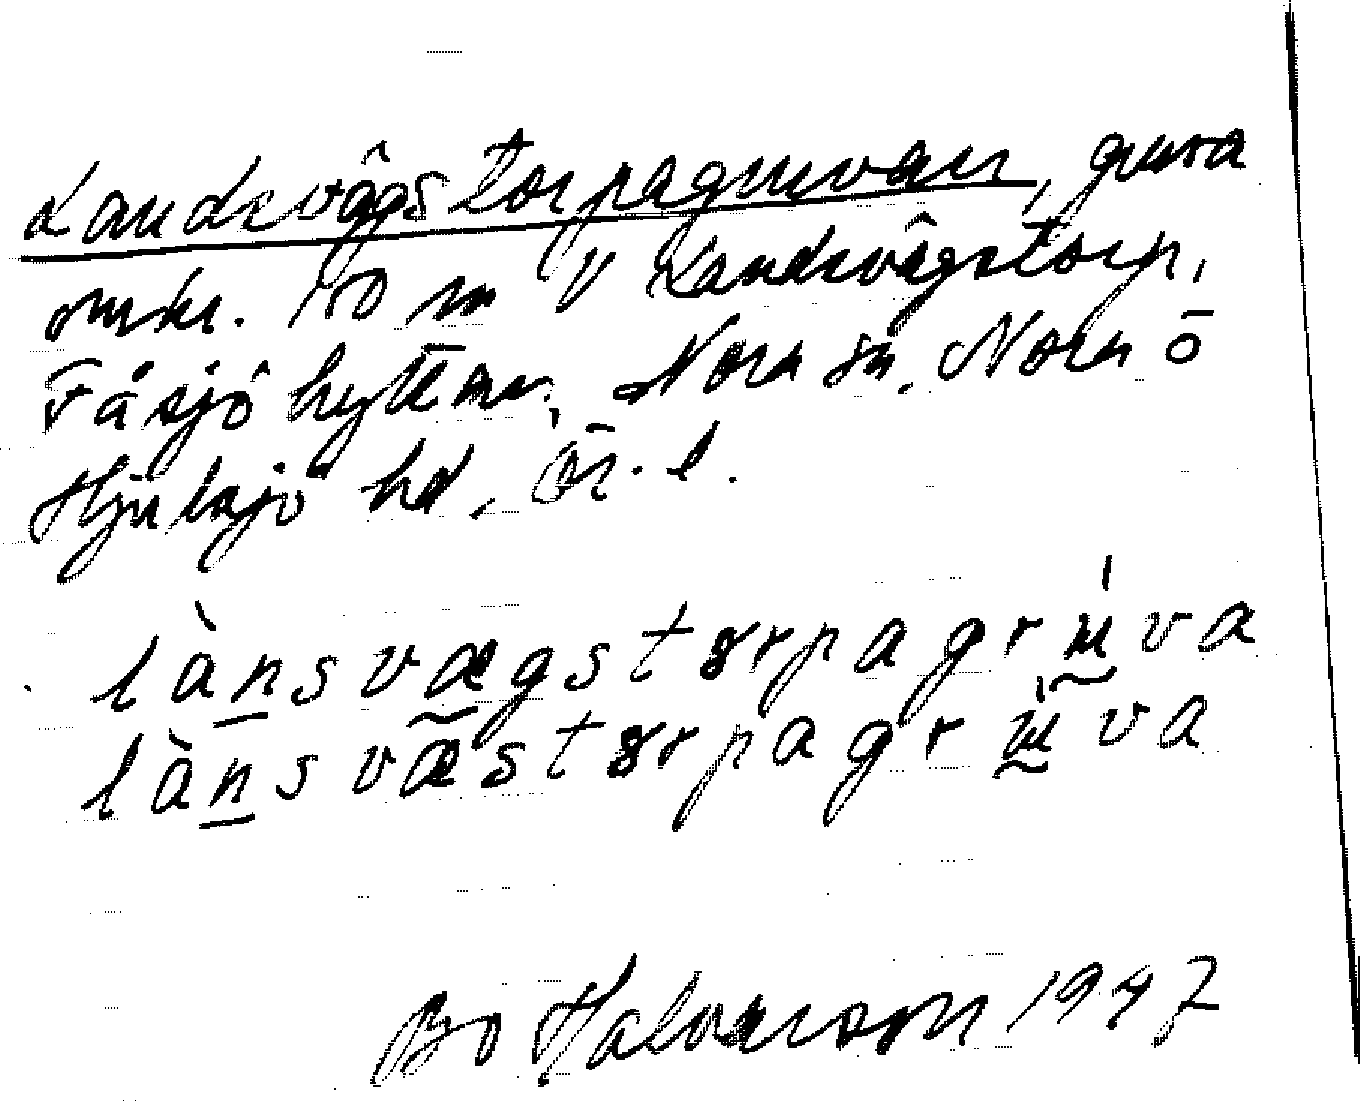 Landsvägstorpagruvan, gruva
omkr. 150 m V Landsvägstorp,
Fåsjöhyttan, Nora sn, Nora o
Hjulsjö hd, Ör. l.
lànsvægstørpagrúva
lànsvæstørpagrúva
Bo Halvarson 1947